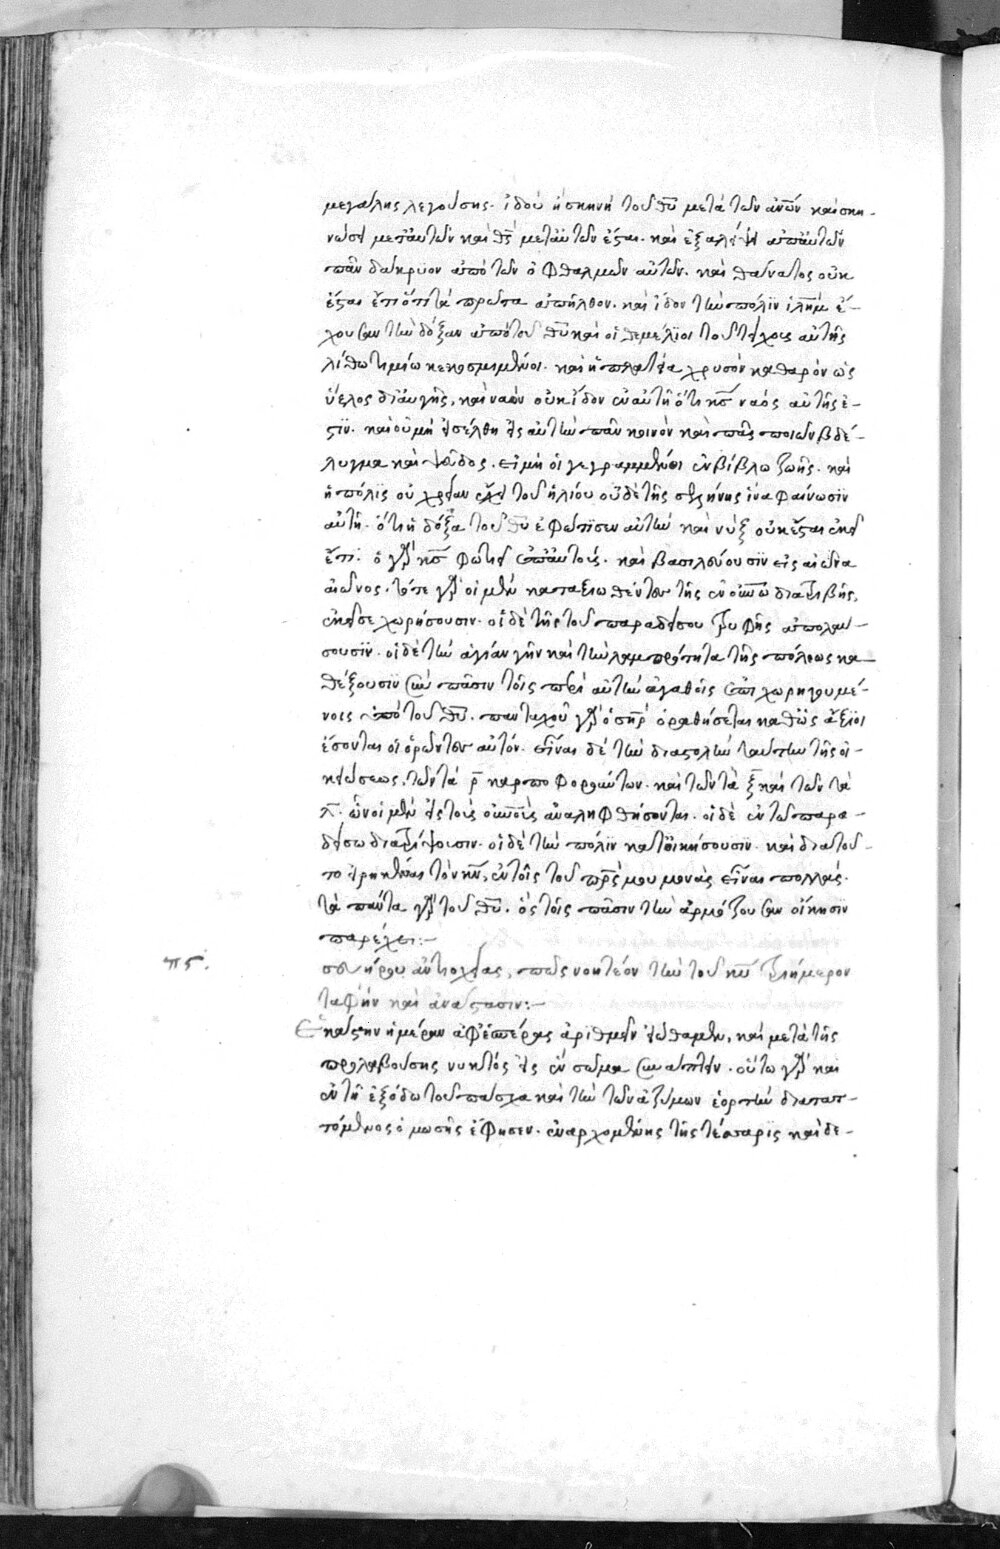 μεγάλης λεγούσης· ἰδοὺ ἡ σκηνὴ τοῦ θῦ μετὰ τῶν ἀνῶν καὶ σκη-
νώσει μετ' αὐτῶν καὶ θς μετ' αὐτῶν ἔσται· καὶ ἐξαλείψει ἀπ' αὐτῶν
πᾶν δάκρυον ἀπὸ τῶν ὀφθαλμῶν αὐτῶν· καὶ θάνατος οὐκ
ἔσται ἔτι ὅτι τὰ πρῶτα ἀπῆλθον· καὶ ἴδον τὴν πόλιν ἱλημ ἔ-
χουσαν τὴν δόξαν ἀπὸ τοῦ θῦ καὶ οἱ θεμέλιοι τοῦ τείχους αὐτῆς
λίθω τιμίω κεκοσμημένοι· καὶ ἡ πλατεῖα χρυσὸν καθαρὸν ὡς
ὕελος διαυγής, καὶ ναὸν οὐκ εἶδον ἐν αὐτῆ ὅτι κς ναὸς αὐτῆς ἐ-
στιν· καὶ οὐ μὴ εἰσέλθη εἰς αὐτὴν πᾶν κοινὸν καὶ πᾶς ποιῶν βδέ-
λυγμα καὶ ψεῦδος· εἰ μὴ οἱ γεγραμμένοι ἐν βίβλω ζωῆς· καὶ
ἡ πόλις οὐ χρείαν ἔχει τοῦ ἡλίου οὐδὲ τῆς σελήνης ἵνα φαίνωσιν
αὐτῆ· ὅτι ἡ δόξα τοῦ θῦ ἐφώτισεν αὐτὴν καὶ νὺξ οὐκ ἔσται ἐκεῖ
ἔτι· ὁ γὰρ κς φωτιεῖ ἐπ' αὐτούς· καὶ βασιλεύουσιν εἰς αἰῶνα
αἰῶνος· τότε γὰρ οἱ μὲν καταξιωθέντες τῆς ἐν οὐνῶ διατριβῆς,
ἐκεῖσε χωρήσουσιν· οἱ δὲ τῆς τοῦ παραδείσου τρυφῆς ἀπολαύ-
σουσιν· οἱ δὲ τὴν ἁγίαν γῆν καὶ τὴν λαμπρότητα τῆς πόλεως κα-
θέξουσιν σὺν πᾶσιν τοῖς περὶ αὐτὴν ἀγαθοῖς ἐπιχορηγουμέ-
νοις ὑπὸ τοῦ θῦ· πανταχοῦ γὰρ ὁ σηρ ὁραθήσεται καθὼς ἄξιοι
ἔσονται οἱ ὁρῶντες αὐτόν· εἶναι δὲ τὴν διαστολὴν ταύτην τῆς οἰ-
κήσεως, τῶν τὰ ρ καρποφορούντων· καὶ τῶν τὰ ξ καὶ τῶν τὰ
λ· ὧν οἱ μὲν εἰς τοὺς οὐνοὺς ἀναληφθήσονται· οἱ δὲ ἐν τῶ παρα-
δείσω διατρίψουσιν· οἱ δὲ τὴν πόλιν κατοικήσουσιν· καὶ διὰ τοῦ-
το εἰρηκέναι τὸν κν, ἐν τοῖς τοῦ πρς μου μονὰς εἶναι πολλάς·
τὰ πάντα γὰρ τοῦ θῦ· ὃς τοῖς πᾶσιν τὴν ἁρμόζουσαν οἴκησιν
παρέχει:—
πς· σευήρου ἀντιοχείας, πῶς νοητέον τὴν τοῦ κῦ τριήμερον
ταφὴν καὶ ἀνάστασιν:—
Ἑκάστην ἡμέραν ἀφ' ἑσπέρας ἀριθμεῖν εἰώθαμεν, καὶ μετὰ τῆς
προλαβούσης νυκτὸς εἰς ἓν σῶμα συνάπτειν· οὕτω γὰρ καὶ
ἐν τῆ ἐξόδω τοῦ πάσχα καὶ τὴν τῶν ἀζύμων ἑορτὴν διατατ-
τόμενος ὁ μωσῆς ἔφησεν· ἐναρχομένης τῆς τέσσαρις καὶ δε-